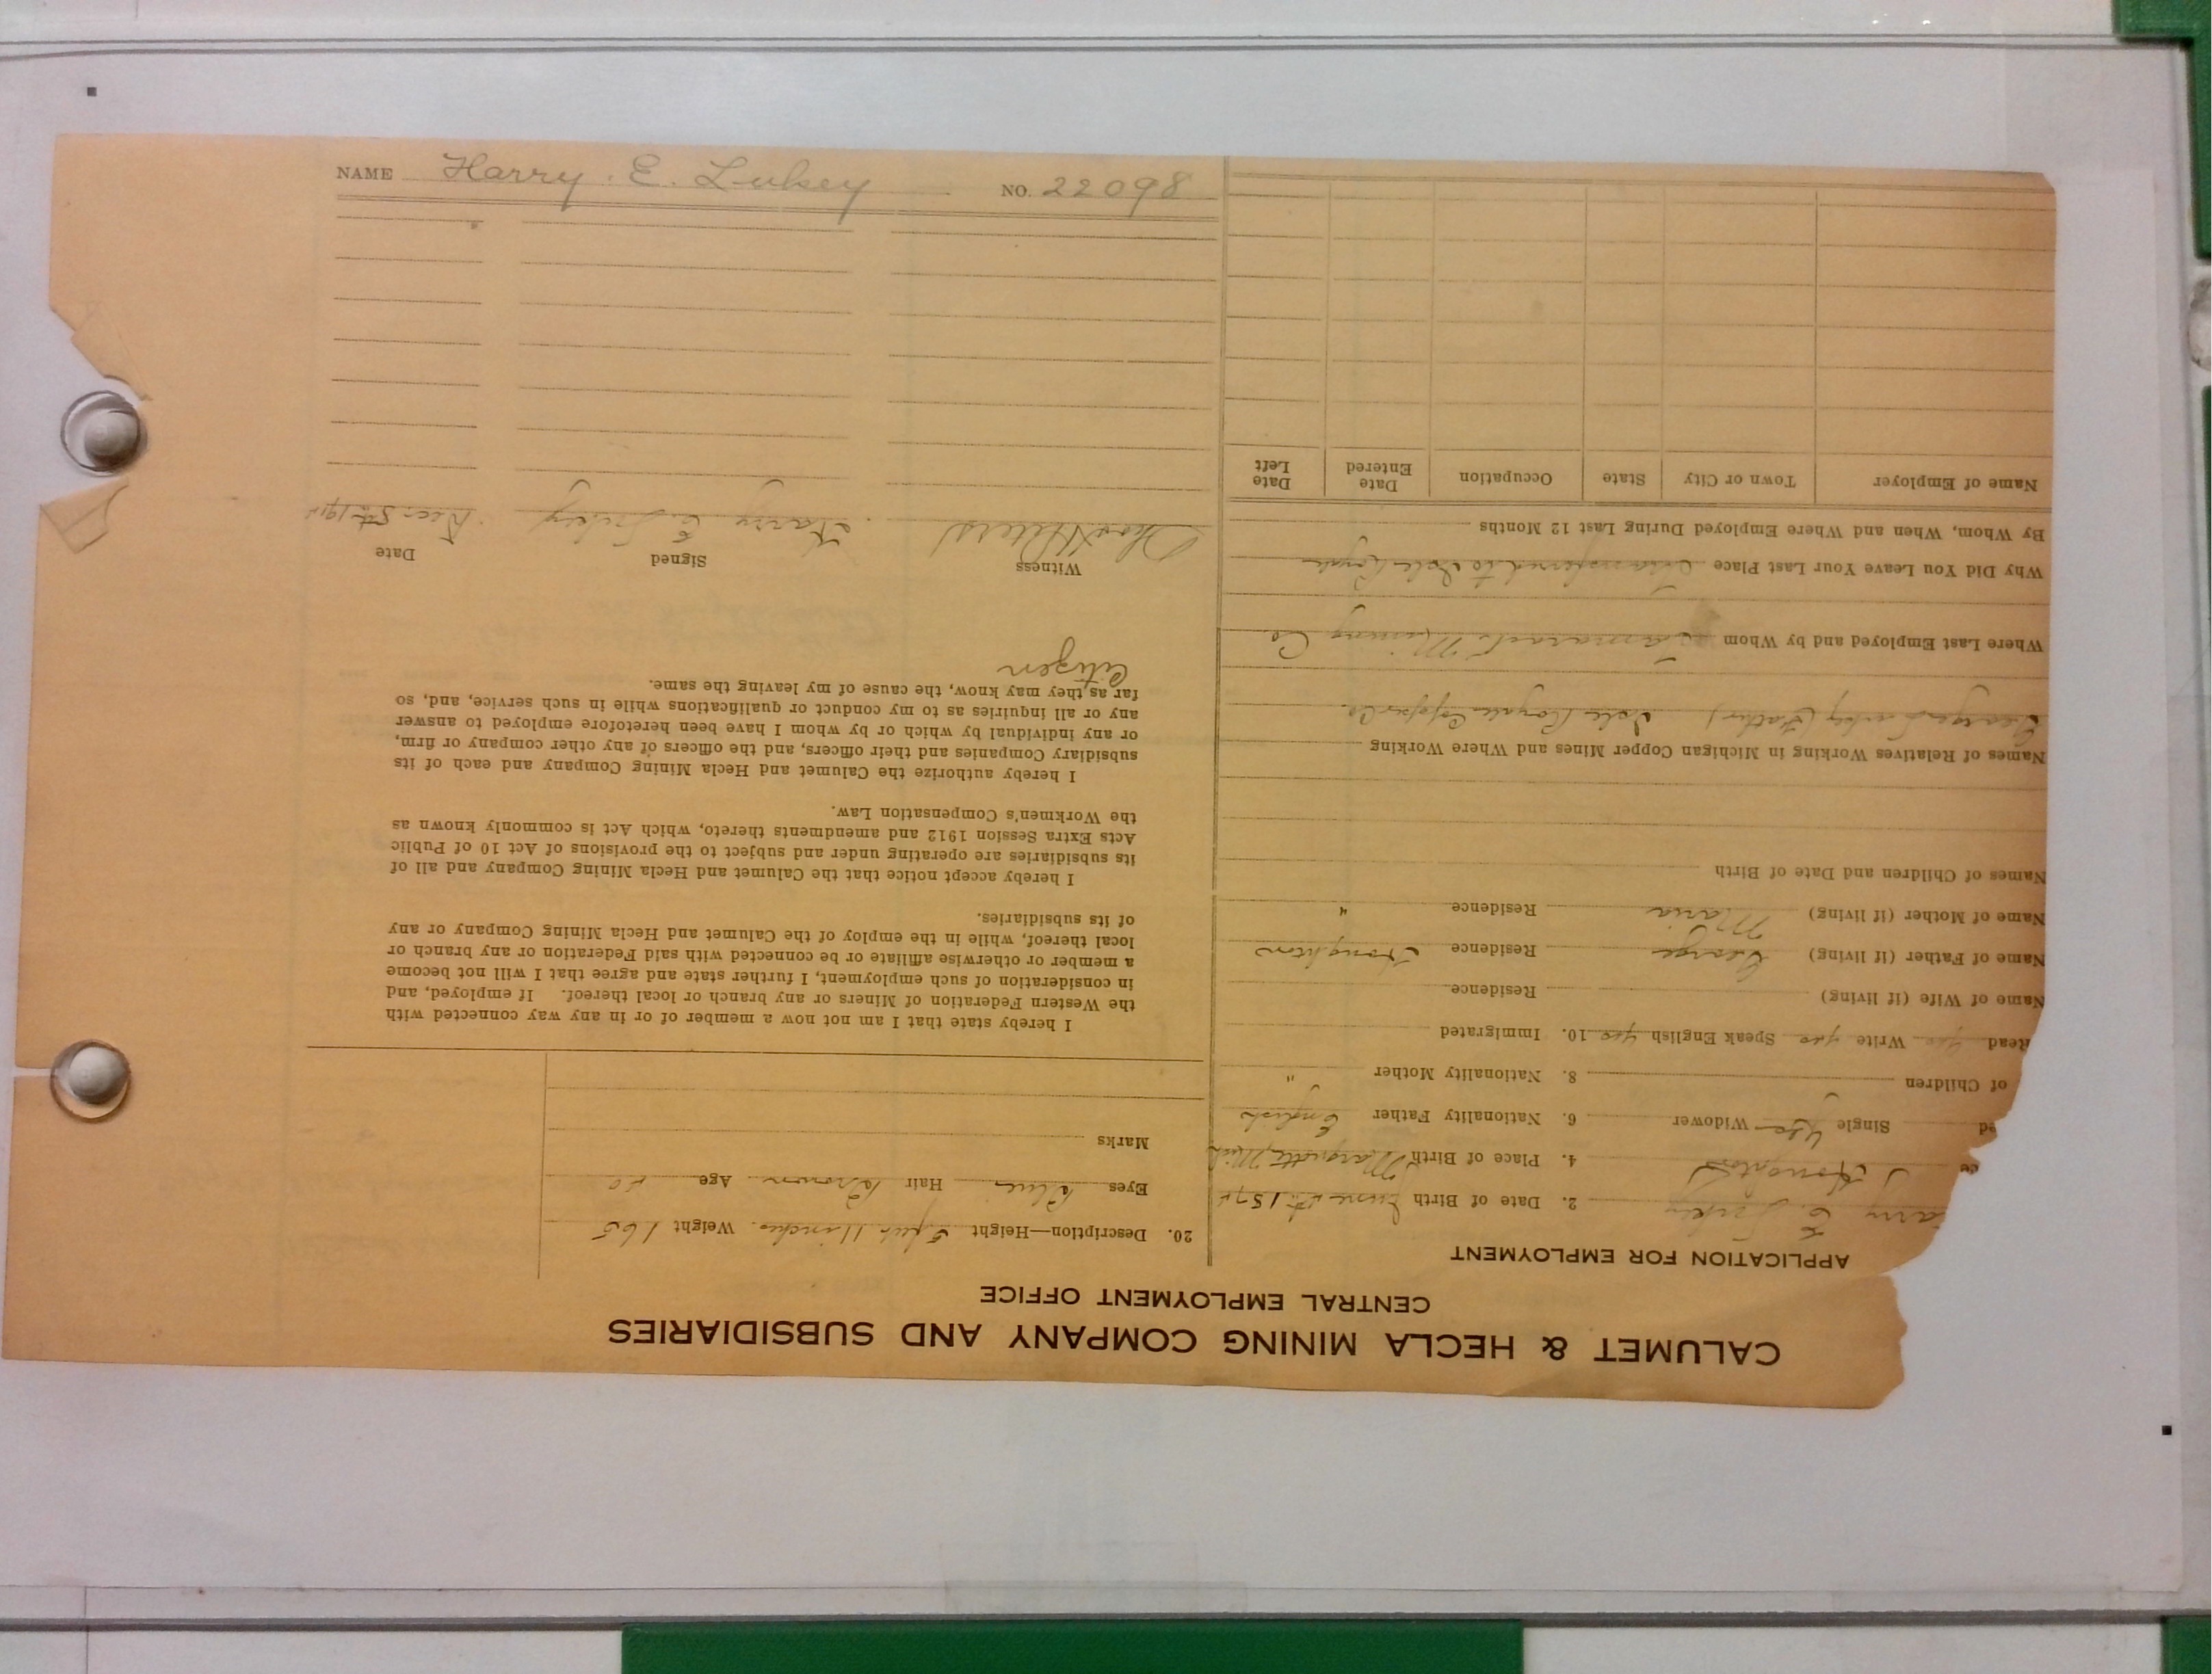 CALUMET & HECLA MINING COMPANY AND SUBSIDIARIES
CENTRAL EMPLOYMENT OFFICE
APPLICATION FOR EMPLOYMENT
E. 2. Date of Birth June
ce Houghton 4. Place of Birth Marquette, Mich
ed Single yes Widower 6. Nationality Father English
of Children 8. Nationality Mother "
Read yes Write yes Speak English yes 10. Immigrated
Name of Wife (if living) Residence
Name of Father (if living) George Residence Houghton
Name of Mother (if living) Maria Residence "
Names of Children and Date of Birth
Names of Relatives Working in Michigan Copper Mines and Where Working
George (Father) Isle Royale Copper Co.
Where Last Employed and by Whom Tamarack Mining Co
Why Did You Leave Your Last Place Transferred to Isle Royale
By Whom, When and Where Employed During Last 12 Months
Name of Employer Town or City State Occupation Date Entered Date Left
20. Description—Height 5 feet 11 inches. Weight 165
Eyes Blue Hair Brown Age 40
Marks
I hereby state that I am not now a member of or in any way connected with
the Western Federation of Miners or any branch or local thereof. If employed, and
in consideration of such employment, I further state and agree that I will not become
a member or otherwise affiliate or be connected with said Federation or any branch or
local thereof, while in the employ of the Calumet and Hecla Mining Company or any
of its subsidiaries.
I hereby accept notice that the Calumet and Hecla Mining Company and all of
its subsidiaries are operating under and subject to the provisions of Act 10 of Public
Acts Extra Session 1912 and amendments thereto, which Act is commonly known as
the Workmen's Compensation Law.
I hereby authorize the Calumet and Hecla Mining Company and each of its
subsidiary Companies and their officers, and the officers of any other company or firm,
or any individual by which or by whom I have been heretofore employed to answer
any or all inquiries as to my conduct or qualifications while in such service, and, so
far as they may know, the cause of my leaving the same.
Citizen
Witness Signed Date
Harry E. Dec. 5th
NAME Harry. E. Lukey NO. 22098